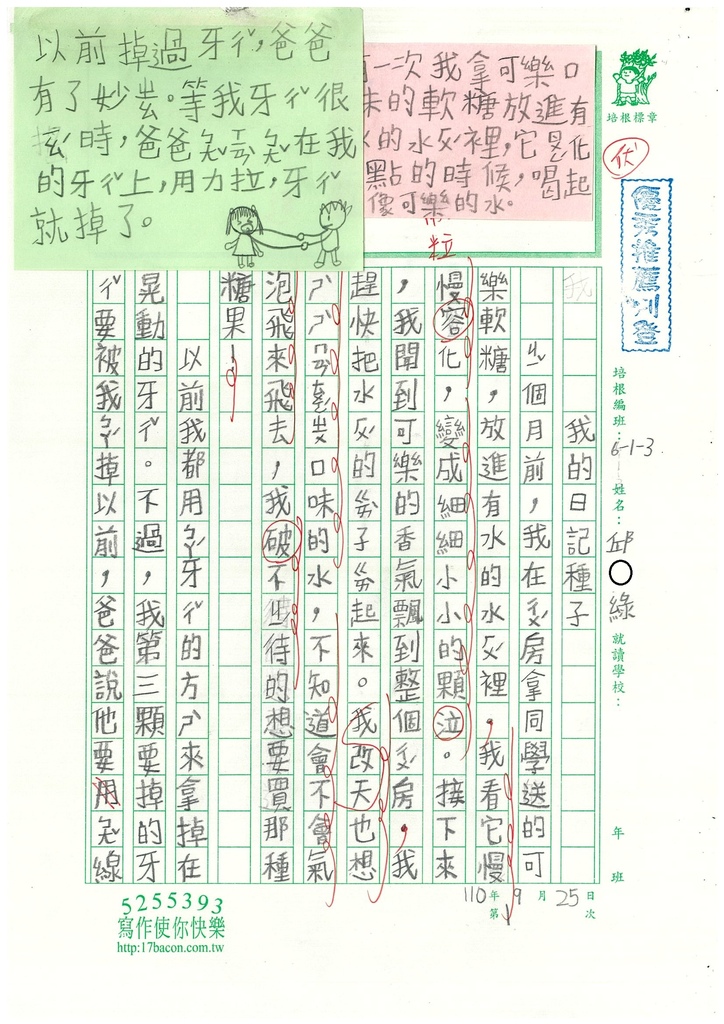 以前掉過牙ㄔˇ，爸爸
有了妙。等我牙ㄔˇ很
時，爸爸在我
的牙ㄔˇ上，用力拉，牙ㄔˇ
就掉了。
一次我拿可樂口
味的軟糖放進有
的水裡，它化
點的時候，喝起
像可樂的水。
培根標章
優
優秀推薦刊登
培根編班：6-1-3
姓名：邱○綠
就讀學校：
年 班
粒
我
我的日記種子
個月前，我在房拿同學送的可
樂軟糖，放進有水的水裡，我看它慢
慢容化，變成細細小小的顆泣。接下來
，我聞到可樂的香氣飄到整個房，我
趕快把水的子起來。我改天也想
口味的水，不知道會不會氣
泡飛來飛去，我破不待的想要買那種
糖果！
以前我都用牙ㄔˇ的方ㄕˋ來拿掉在
晃動的牙ㄔˇ。不過，我第三顆要掉的牙
ㄔˇ要被我掉以前，爸爸說他要用線
110年9月25日
第 次
5255393
寫作使你快樂
http:17bacon.com.tw